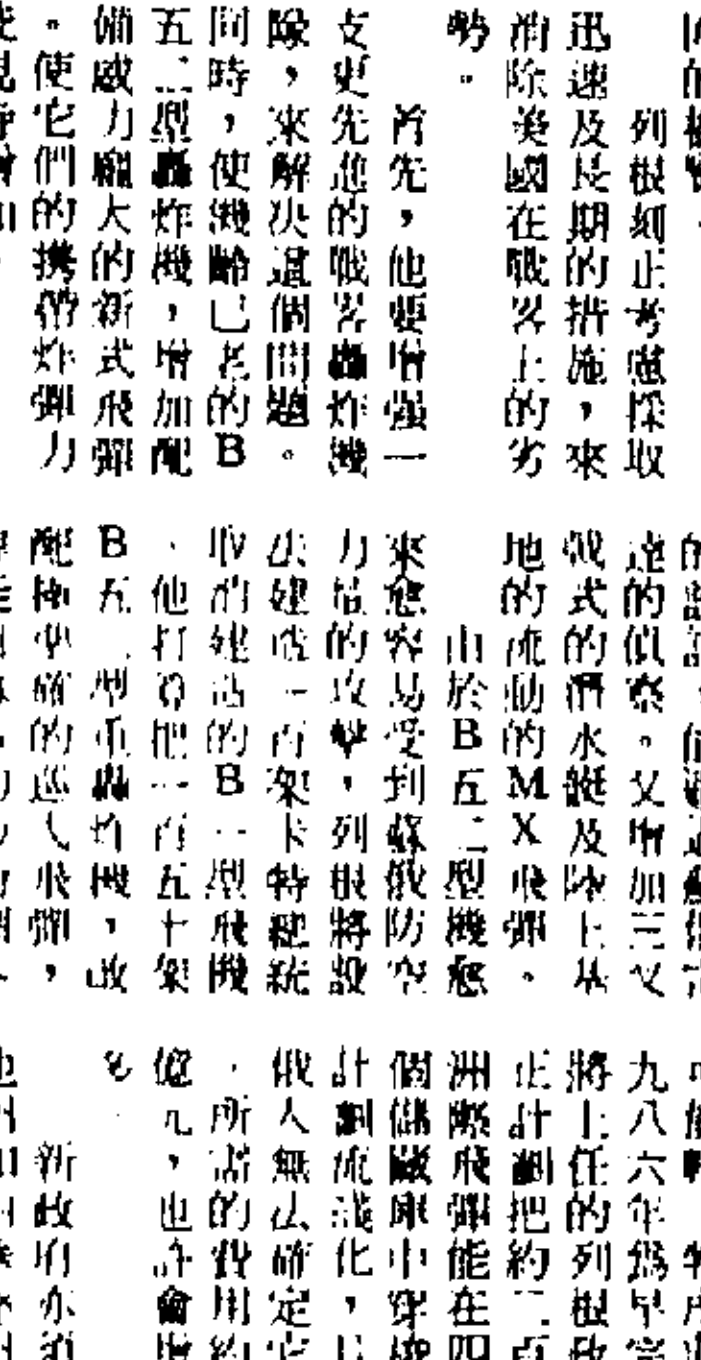 列根刻正考慮採取
迅速及長期的措施，來
消除美國在戰畧上的劣
勢。
首先，他要增强一
支更先進的戰畧轟炸機
隊，來解决這個問題。
同時，使機齡已老的B
五二型轟炸機，增加配
備威力龐大的新式飛彈
。使它們的携帶炸彈力
達的偵察。又增加三叉
戟式的潛水艇及陸上基
地的流動的MX飛彈。
由於B五二型機愈
來愈容易受到蘇俄防空
力量的攻擊，列根將設
法建成一百架卡特總統
取消建造的B一型飛機
、他打算把一百五十架
B五二型重轟炸機，改
配極準確的巡人飛彈，
九八六年爲早
將上任的列根政
正計劃把約二百
洲際飛彈能在四
個儲藏庫中穿梭
計劃流淺化，
俄人無法確定它
，所需的費用約
億元，也許會增
多
新政府亦須